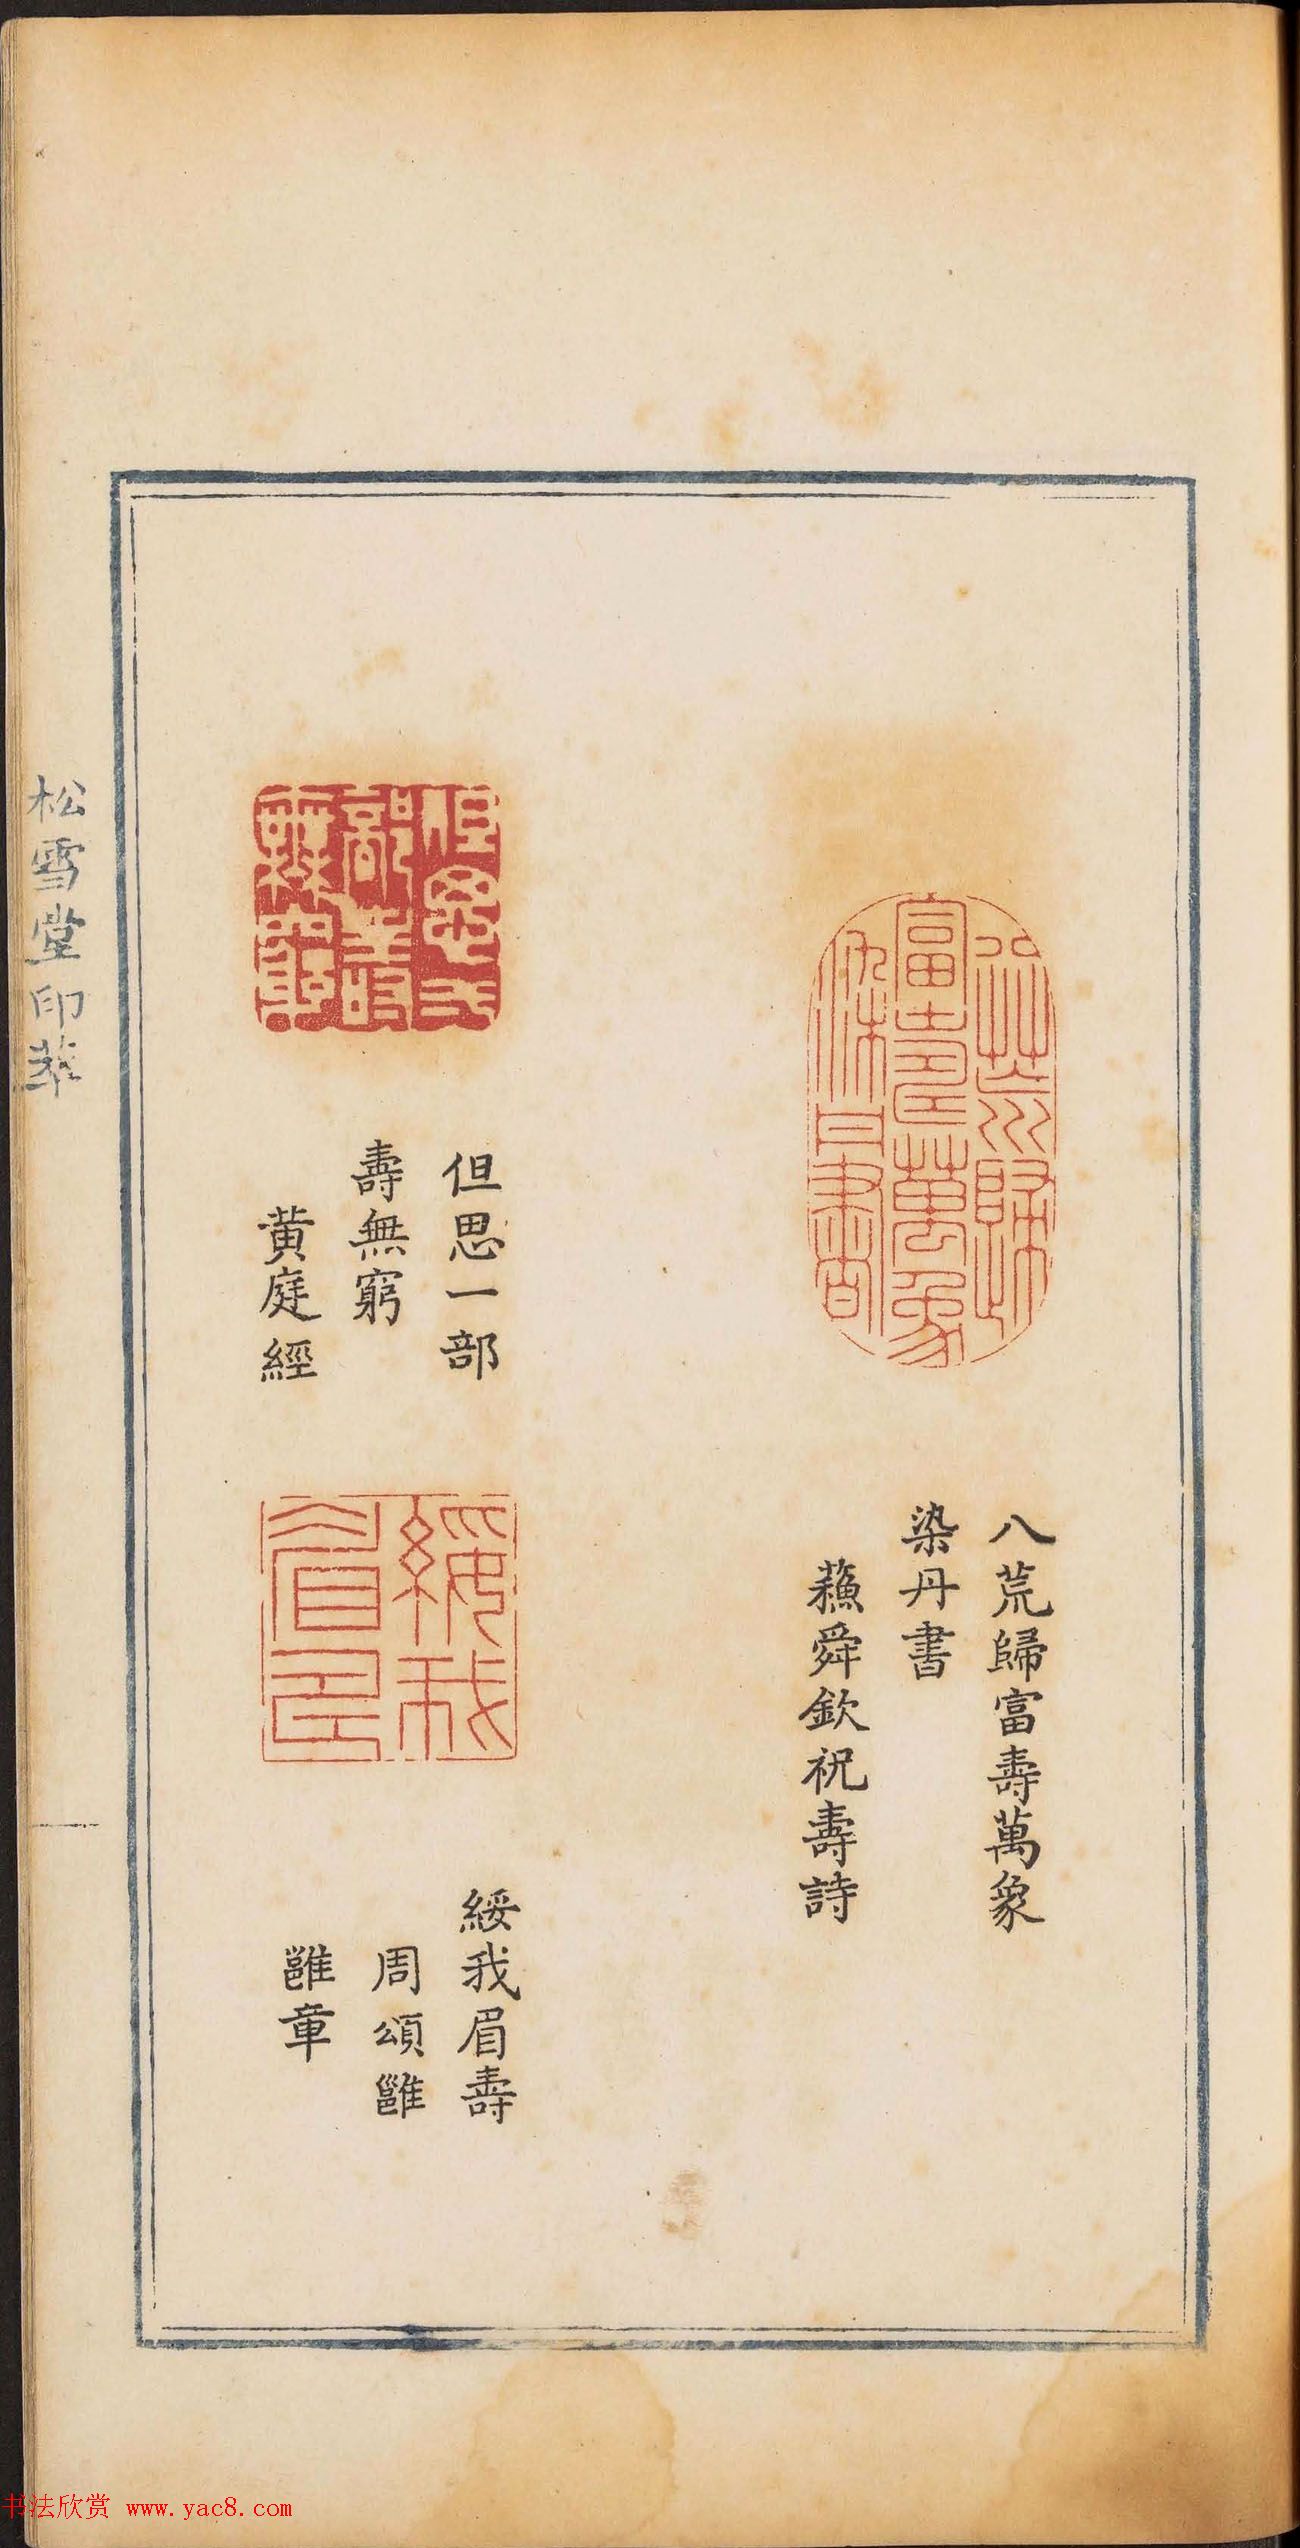 八荒歸富壽萬象
染丹書
蘓舜欽祝壽詩
但思一部
壽無窮
黄庭經
綏我眉壽
周頌雝
雝章
松雪堂印萃
书法欣赏 www.yac8.com